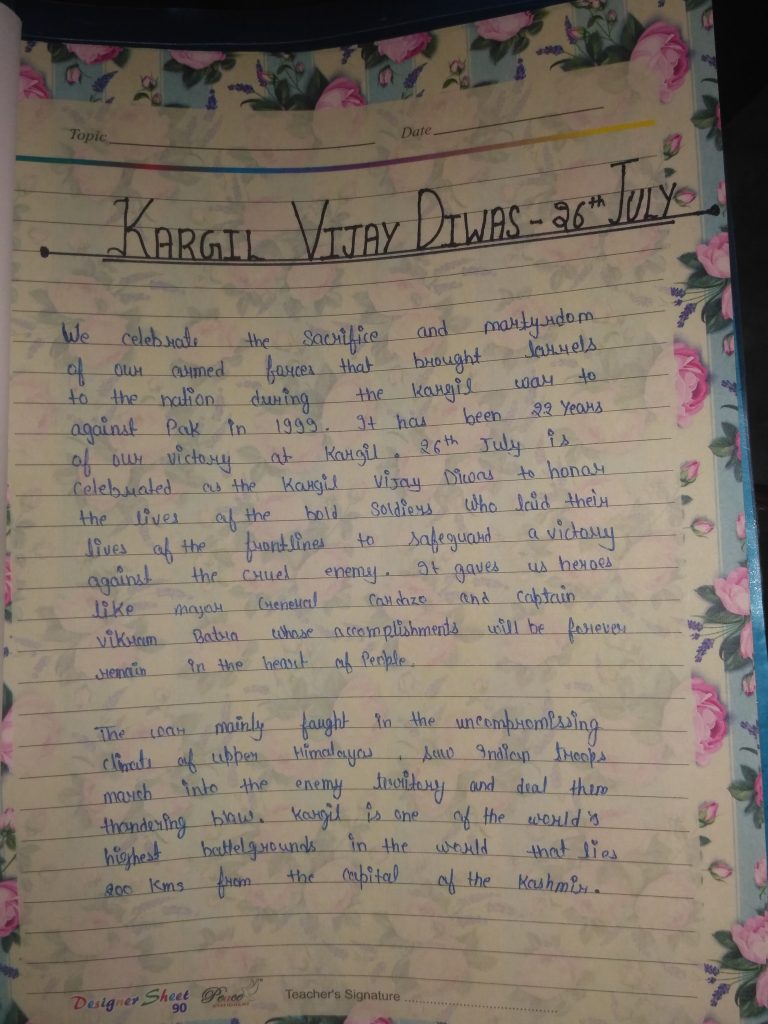 Topic
Date
KARGIL VIJAY DIWAS - 26th JULY
We celebrate the sacrifice and martyrdom
of our armed forces that brought larrels
to the nation during the kargil war to
against Pak in 1999. It has been 22 Years
of our victory at Kargil. 26th July is
celebrated as the Kargil Vijay Diwas to honar
the lives of the bold Soldiers who laid their
lives of the frontlines to safeguard a victory
against the cruel enemy. It gaves us heroes
like major General Cardozo and captain
vikram Batra whose accomplishments will be forever
remain in the heart of People.
The war mainly faught in the uncompromissing
climate of upper Himalayas, saw Indian troops
march into the enemy territory and deal them
thandering blow. Kargil is one of the world's
highest battelgrounds in the world that lies
200 Kms from the capital of the Kashmir.
Designer Sheet
90
Teacher's Signature